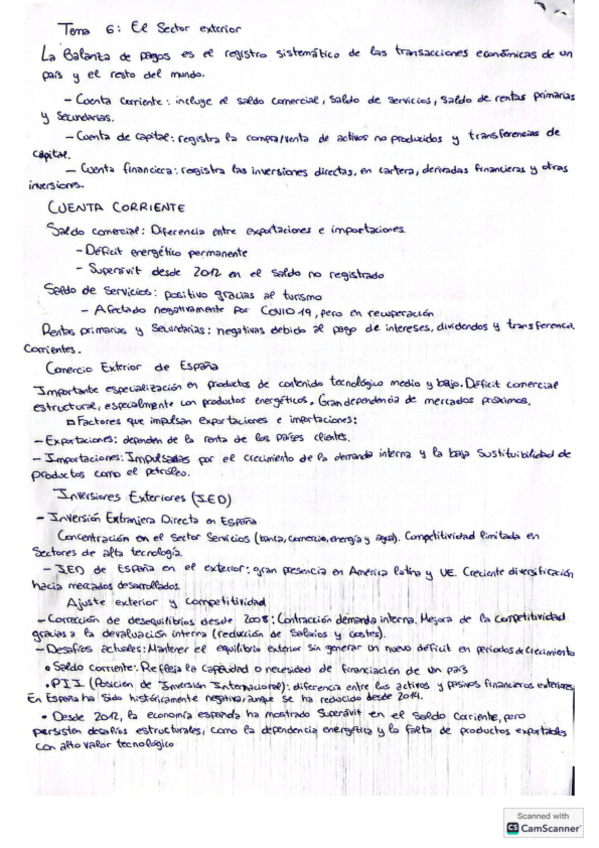 Tema 6: El Sector exterior
La Balanza de pagos es el registro sistemático de las transacciones económicas de un
país y el resto del mundo.
- Cuenta corriente: incluye el saldo comercial, saldo de servicios, saldo de rentas primarias
y secundarias.
- Cuenta de capital: registra la compra/venta de activos no producidos y transferencias de
capital.
- Cuenta financiera: registra las inversiones directas, en cartera, derivadas financieras y otras
inversiones.
CUENTA CORRIENTE
Saldo comercial: Diferencia entre exportaciones e importaciones.
- Déficit energético permanente
- Superávit desde 2012 en el saldo no registrado
Saldo de Servicios: positivo gracias al turismo
- Afectado negativamente por COVID19, pero en recuperación
Rentas primarias y Secundarias: negativas debido al pago de intereses, dividendos y transferencia.
Corrientes.
Comercio Exterior de España
Importante especialización en productos de contenido tecnológico medio y bajo. Déficit comercial
estructural, especialmente con productos energéticos. Gran dependencia de mercados próximos.
Factores que impulsan exportaciones e importaciones:
- Exportaciones: dependen de la renta de los países clientes.
- Importaciones: Impulsadas por el crecimiento de la demanda interna y la baja Sustituibilidad de
productos como el petróleo.
Inversiones Exteriores (IED)
- Inversión Extranjera Directa en España
Concentración en el Sector Servicios (banca, comercio, energía y agua). Competitividad limitada en
Sectores de alta tecnología.
- IED de España en el exterior: gran presencia en América latina y UE. Creciente diversificación
hacia mercados desarrollados.
Ajuste exterior y competitividad
- Corrección de desequilibrios desde 2008: Contracción demanda interna. Mejora de la competitividad
gracias a la devaluación interna (reducción de Salarios y costes).
- Desafíos actuales: Mantener el equilibrio exterior sin generar un nuevo déficit en periodos de crecimiento
• Saldo corriente: Refleja la capacidad o necesidad de financiación de un país
• PII (Posición de Inversión Internacional): diferencia entre los activos y pasivos financieros exteriores.
En España ha sido históricamente negativa, aunque se ha reducido desde 2014.
• Desde 2012, la economía española ha mostrado Superávit en el Saldo corriente, pero
persisten desafíos estructurales, como la dependencia energética y la falta de productos exportables
con alto valor tecnológico
Scanned with
CS CamScanner